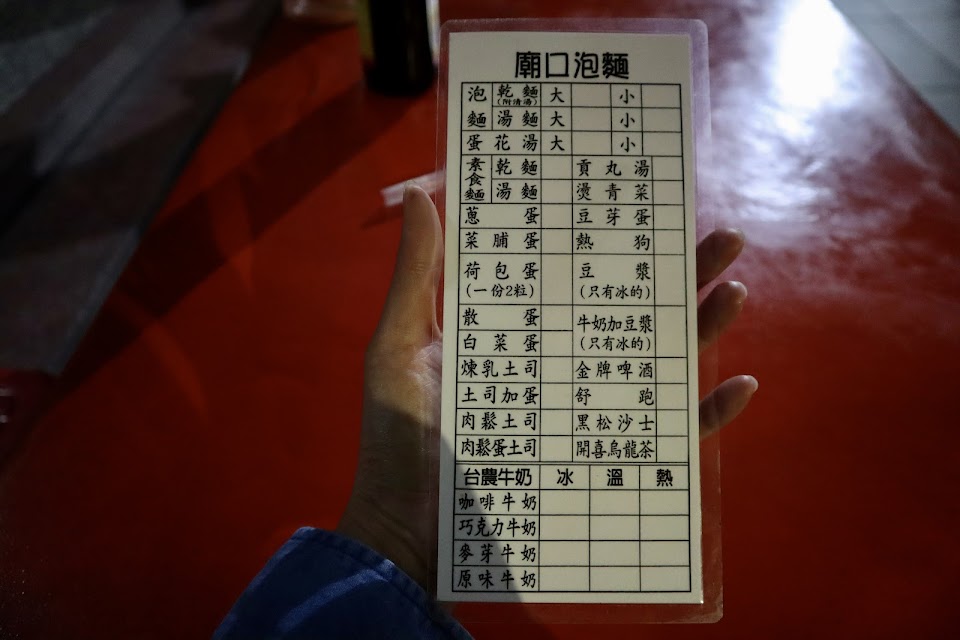 廟口泡麵
泡麵 乾麵(附清湯) 大 小
湯麵 大 小
蛋花湯 大 小
素食麵 乾麵 貢丸湯
湯麵 燙青菜
蔥蛋 豆芽蛋
菜脯蛋 熱狗
荷包蛋 豆漿
(一份2粒) (只有冰的)
散蛋 牛奶加豆漿
白菜蛋 (只有冰的)
煉乳土司 金牌啤酒
土司加蛋 舒跑
肉鬆土司 黑松沙士
肉鬆蛋土司 開喜烏龍茶
台農牛奶 冰 溫 熱
咖啡牛奶
巧克力牛奶
麥芽牛奶
原味牛奶